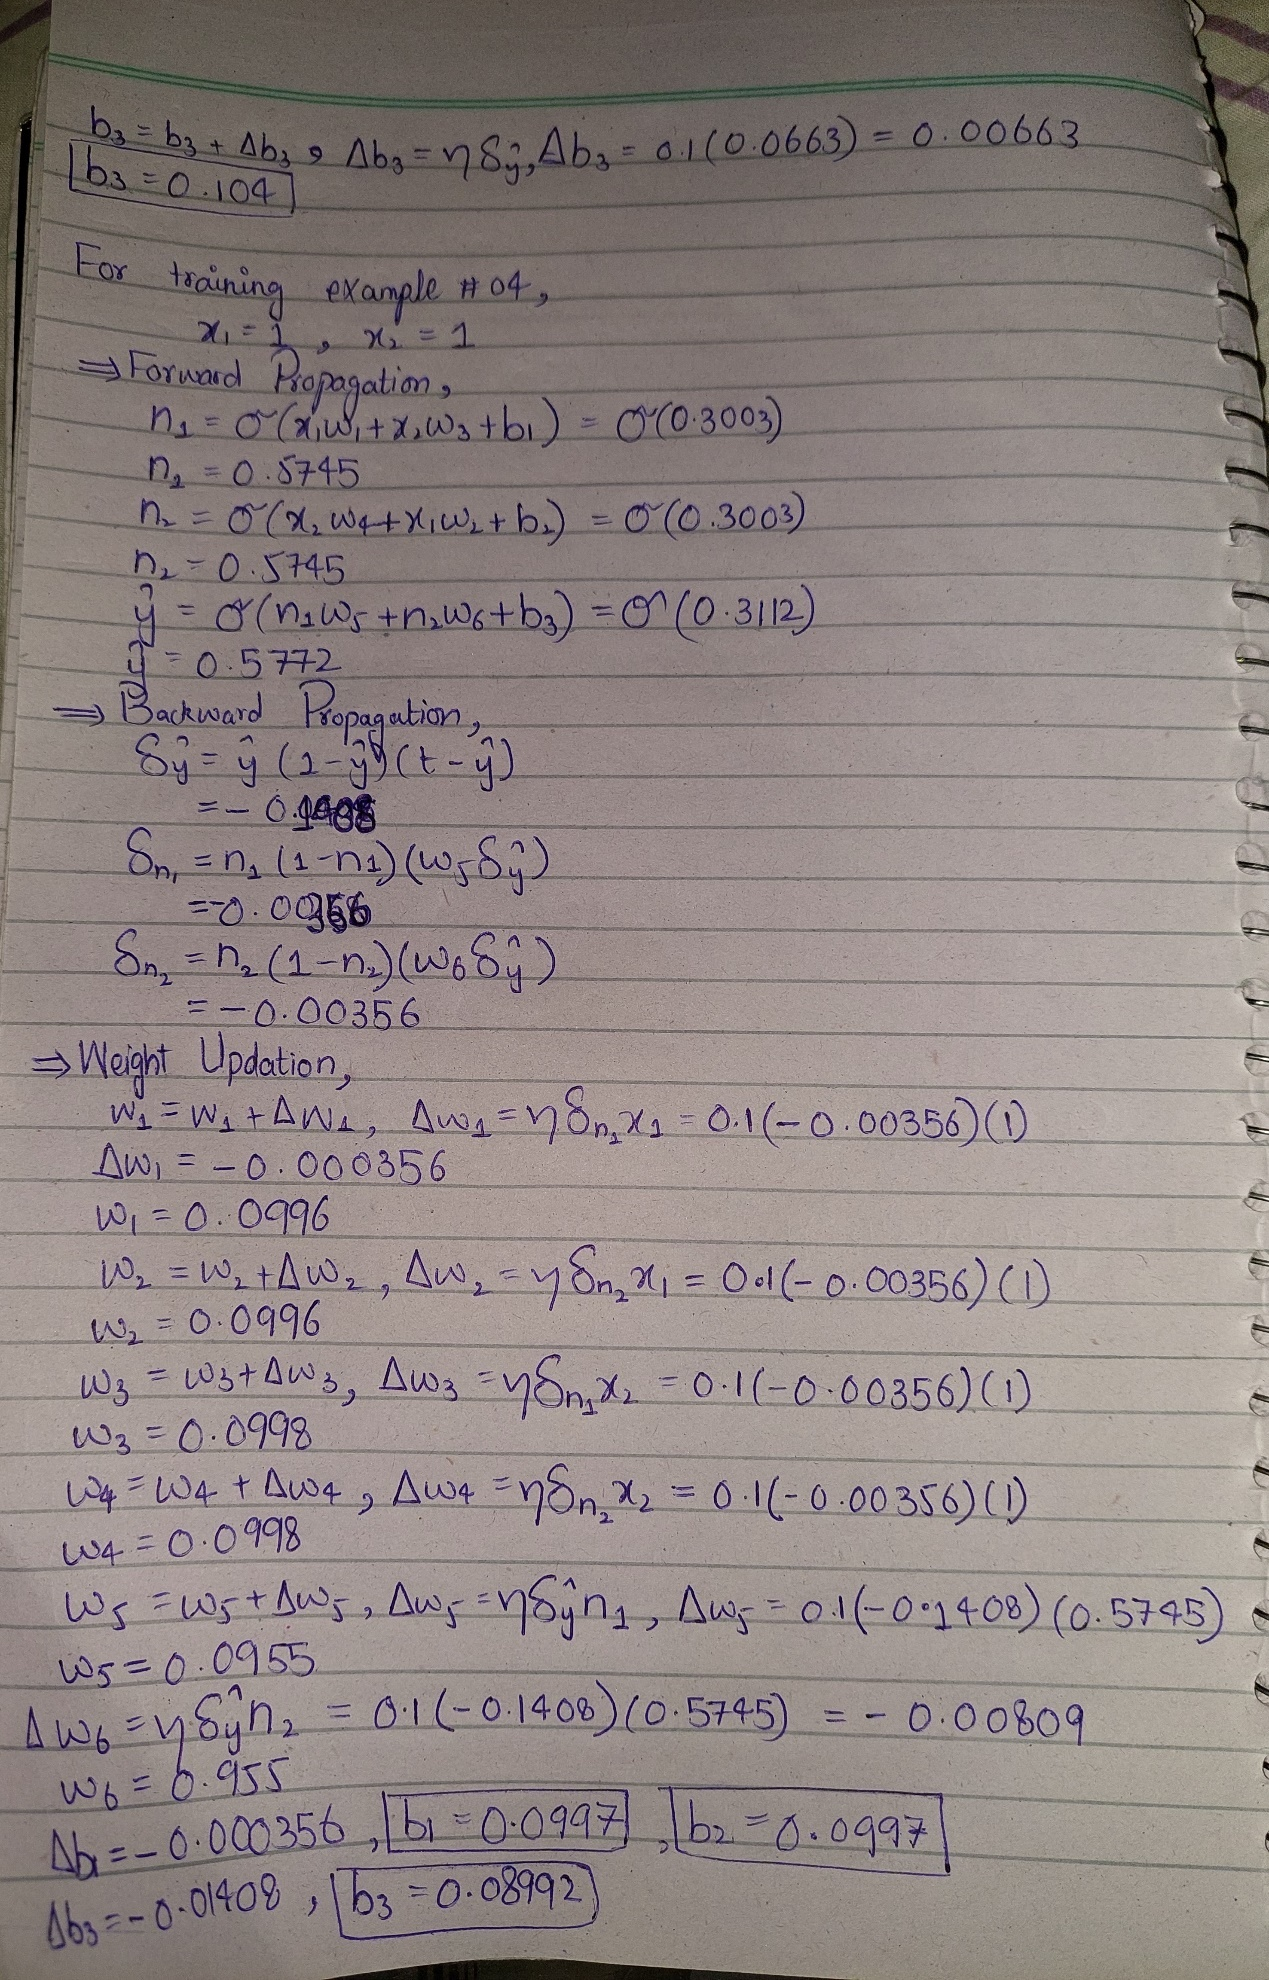 b₃ = b₃ + Δb₃ , Δb₃ = ηδŷ, Δb₃ = 0.1(0.0663) = 0.00663
b₃ = 0.104
For training example # 04,
x₁ = 1 , x₂ = 1
⇒ Forward Propagation,
n₁ = σ(x₁w₁+x₂w₃+b₁) = σ(0.3003)
n₁ = 0.5745
n₂ = σ(x₂w₄+x₁w₂+b₂) = σ(0.3003)
n₂ = 0.5745
ŷ = σ(n₁w₅+n₂w₆+b₃) = σ(0.3112)
ŷ = 0.5772
⇒ Backward Propagation,
δŷ = ŷ (1-ŷ)(t-ŷ)
= - 0.1408
δn₁ = n₁ (1-n₁)(w₅δŷ)
= -0.00356
δn₂ = n₂ (1-n₂)(w₆δŷ)
= -0.00356
⇒ Weight Updation,
w₁ = w₁ + Δw₁, Δw₁ = ηδn₁x₁ = 0.1(-0.00356)(1)
Δw₁ = -0.000356
w₁ = 0.0996
w₂ = w₂+Δw₂, Δw₂ = ηδn₂x₁ = 0.1(-0.00356)(1)
w₂ = 0.0996
w₃ = w₃+Δw₃, Δw₃ = ηδn₁x₂ = 0.1(-0.00356)(1)
w₃ = 0.0998
w₄ = w₄ + Δw₄, Δw₄ = ηδn₂x₂ = 0.1(-0.00356)(1)
w₄ = 0.0998
w₅ = w₅+Δw₅, Δw₅ = ηδŷn₁, Δw₅ = 0.1(-0.1408)(0.5745)
w₅ = 0.0955
Δw₆ = ηδŷn₂ = 0.1(-0.1408)(0.5745) = - 0.00809
w₆ = 0.955
Δb₁ = -0.000356, b₁ = 0.0997, b₂ = 0.0997
Δb₃ = -0.01408, b₃ = 0.08992